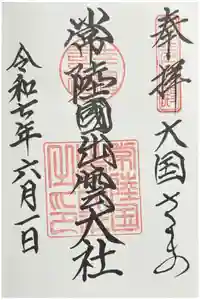 奉拝
大国さまの
常陸國出雲大社
令和七年六月一日